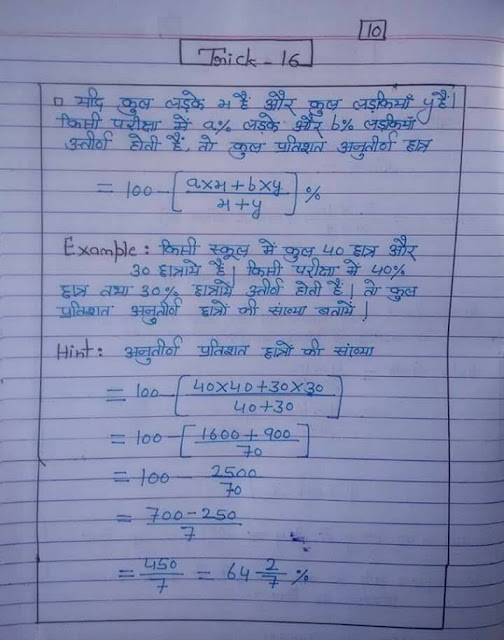 10
Trick - 16
□ यदि कुल लड़के x है और कुल लड़कियाँ y है।
किसी परीक्षा में a% लड़के और b% लड़कियाँ
उत्तीर्ण होती हैं, तो कुल प्रतिशत अनुतीर्ण छात्र
= 100 - [ (a×x + b×y) / (x + y) ] %
Example : किसी स्कूल में कुल 40 छात्र और
30 छात्रायें है। किसी परीक्षा में 40%
छात्र तथा 30% छात्रायें उत्तीर्ण होती है। तो कुल
प्रतिशत अनुतीर्ण छात्रों की संख्या बतायें।
Hint : अनुतीर्ण प्रतिशत छात्रों की संख्या
= 100 - [ (40×40 + 30×30) / (40+30) ]
= 100 - [ (1600 + 900) / 70 ]
= 100 - 2500/70
= (700 - 250) / 7
= 450/7 = 64 2/7 %